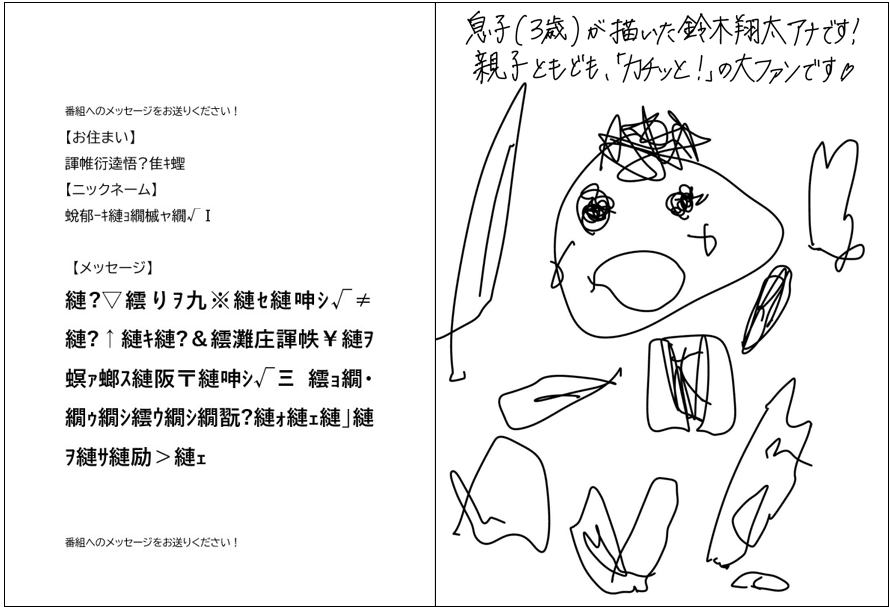 番組へのメッセージをお送りください！
【お住まい】
諢帷衍逵悟?隹ｷ蟶
【ニックネーム】
蛻郁ｰｷ縺ｮ繝槭ャ繝√Ｉ
【メッセージ】
縺?▽繧りｦ九※縺ｾ縺吶ｼ√≠
縺?↑縺ｷ縺?＆繧灘庄諢帙￥縺ｦ
螟ｧ螂ｽ縺阪〒縺吶ｼ√Ξ 繧ｮ繝･
繝ｩ繝ｼ繧ｳ繝ｼ繝翫?縺ｫ縺ｪ縺｣縺
ｦ縺ｻ縺励＞縺ｪ
番組へのメッセージをお送りください！
息子（3歳）が描いた鈴木翔太アナです！
親子ともども、「カチッと！」の大ファンです♡